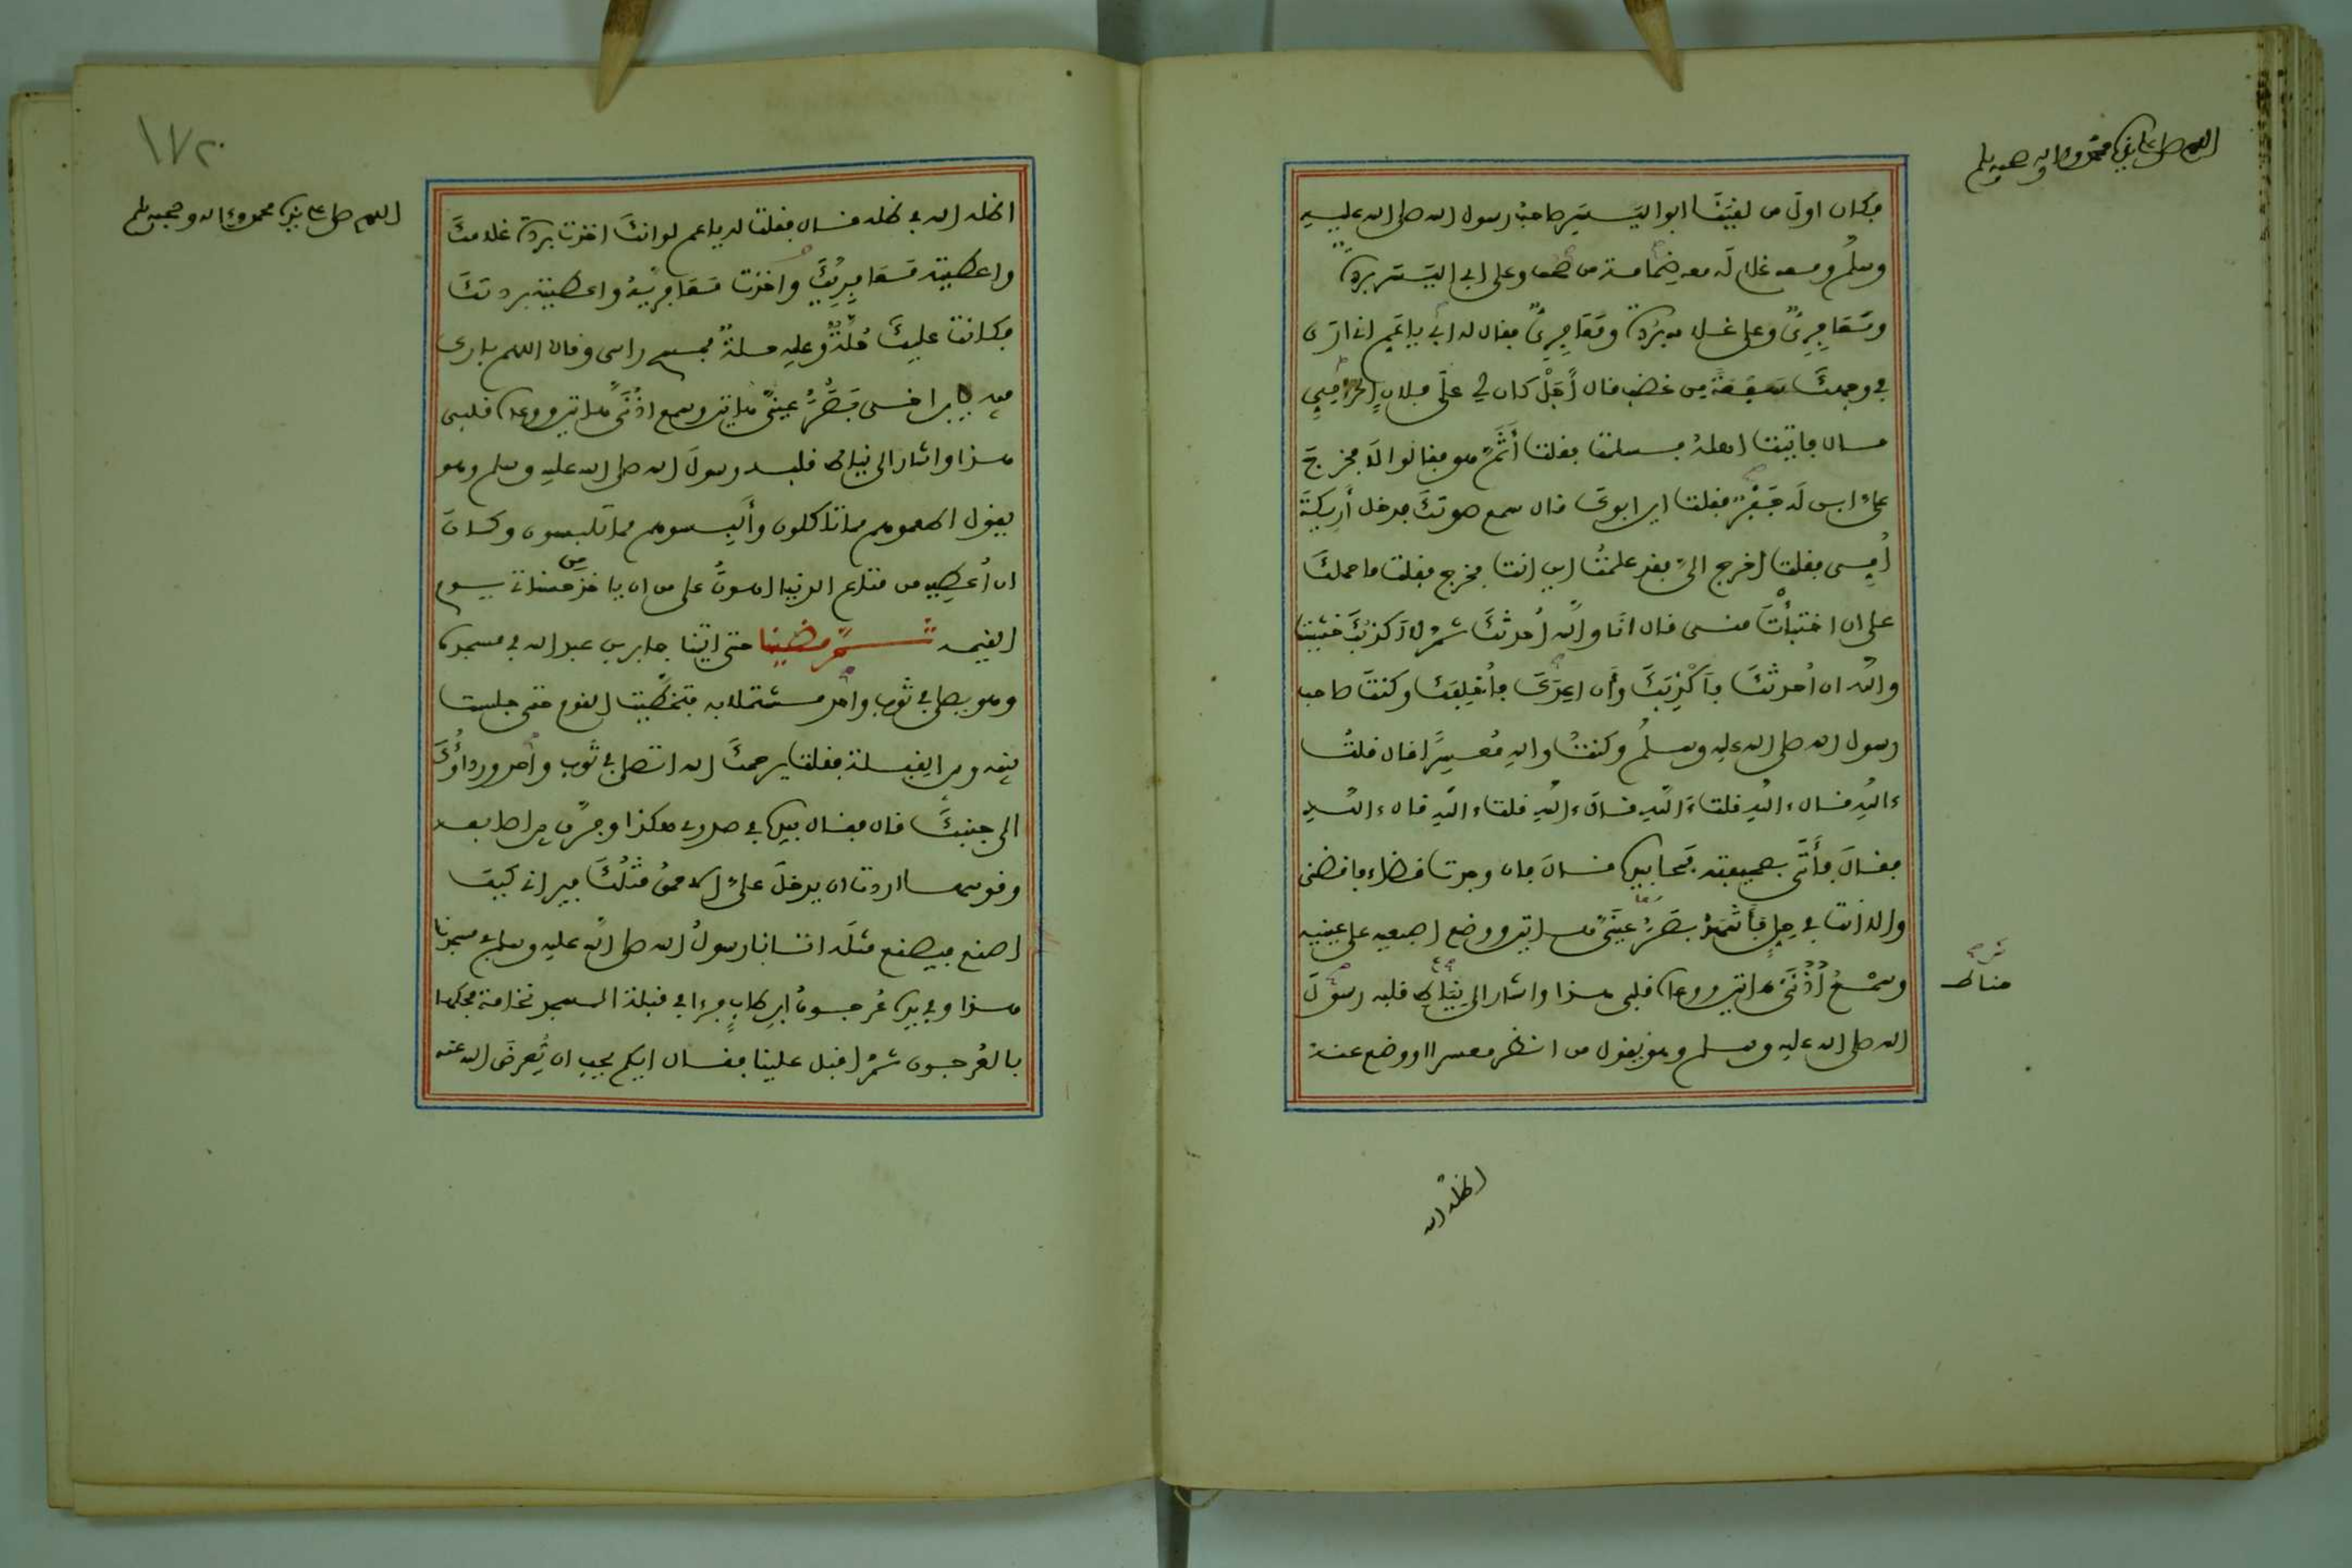 اللهم صل على سيدنا محمد وعلى اله وصحبه وسلم
فكان اول من لقيَنَا ابو اليَسَرِ صاحبُ رسول الله صلى الله عليه
وسلم ومعه غلام لَه معه ضِمامة من صحف وعلى ابي اليَسَر بردة
ومَعَافِرِىٌّ وعلى غلامه بُردة ومَعَافِرِىٌّ فقال له ابى يا عَمِّ انى ارى
في وجهكَ سَفعَةً من غضب قال أجَلْ كان لي على فلان الحرامِيِّ
مال فاتيتُ اهلهُ فسلمت فقلت أَثَمَّ هو فقالوا لَا فخرجَ
علىَّ ابن لَه جَفْرٌ فقلت اين ابوك قال سمع صوتكَ فدخل أَرِيكَةَ
أُمِّى فقلت اخرج الىَّ فقد علمتُ اين انت فخرج فقلت ما حملكَ
على ان اختبأتَ منى قال انَا والله اُحدثكَ ثمَّ لا اَكذبكَ خشيت
والله ان اُحدثكَ فاَكْذِبَكَ وَأَن اعِدَكَ فأُخلِفَك وكنتَ صاحب
رسول الله صلى الله عليه وسلم وكنتُ والله مُعسِرًا قال قلتُ
ءاللهِ قال ءاللهِ قلت ءَاللهِ قالَ ءاللهِ قلت ءاللهِ قال ءاللهِ
فقالَ فأَتَى بصحيفته فمحا بيده فقالَ فان وجدت قضاء فاقضنى
والا انت في حِلٍّ فأشهدُ بَصَرُ عينَىَّ هاتين ووضع اصبعيه على عينيه
وسمْعُ أُذُنَىَّ هاتين ووعاه قلبى هذا واشار الى نِيَاطِ قلبه رسولَ
مناط
الله صلى الله عليه وسلم وهو يقول من انظر معسرا او وضع عنه
اظله الله
١٧٢
اللهم صل على سيدنا محمد وعلى اله وصحبه وسلم
اظله الله في ظله قال فقلت له يا عم لو انكَ اخذت بردة غلامكَ
واعطيته مَعَافِرِيَّكَ واخذت مَعَافِرِيَّهُ واعطيته بردتكَ
فكانت عليكَ حُلَّةٌ وعليه حلةٌ فمسح راسى وقال اللهم بارك
فيه يا ابن اخى بَصَرُ عينىَّ هاتين وسمع اذُنَىَّ هاتين ووعاه قلبى
هذا واشار الى نياط قلبه رسولَ الله صلى الله عليه وسلم وهو
يقول اطعموهم مما تاكلون وأَلبِسوهم مما تلبسون وكان
ان اُعطِيه من متاع الدنيا اهونُ على من ان ياخذ من حسناتى يوم
القيمه ثـــمَّ مضَينا حتى اتينا جابر بن عبد الله في مسجده
وهو يصلى في ثوب واحد مشتملا به فتخطَّيت القوم حتى جلست
بينه وبين القبلة فقلت يرحمكَ الله اتصلى في ثوب واحد ورداؤُكَ
الى جنبكَ قال فقال بيده في صدرى هكذا وفرَّق بين اصابعه
وقوسها اردت ان يدخلَ علىَّ الاحمق مثلُكَ فيرانى كيف
اصنع فيصنع مثلَه اتانا رسولُ الله صلى الله عليه وسلم في مسجدنا
هذا وفى يده عُرجونُ ابن طابٍ فرءا في قبلة المسجد نخامة فحكها
بالعُرجون ثمَّ اقبل علينا فقال ايكم يحب ان يُعرِضَ الله عنه